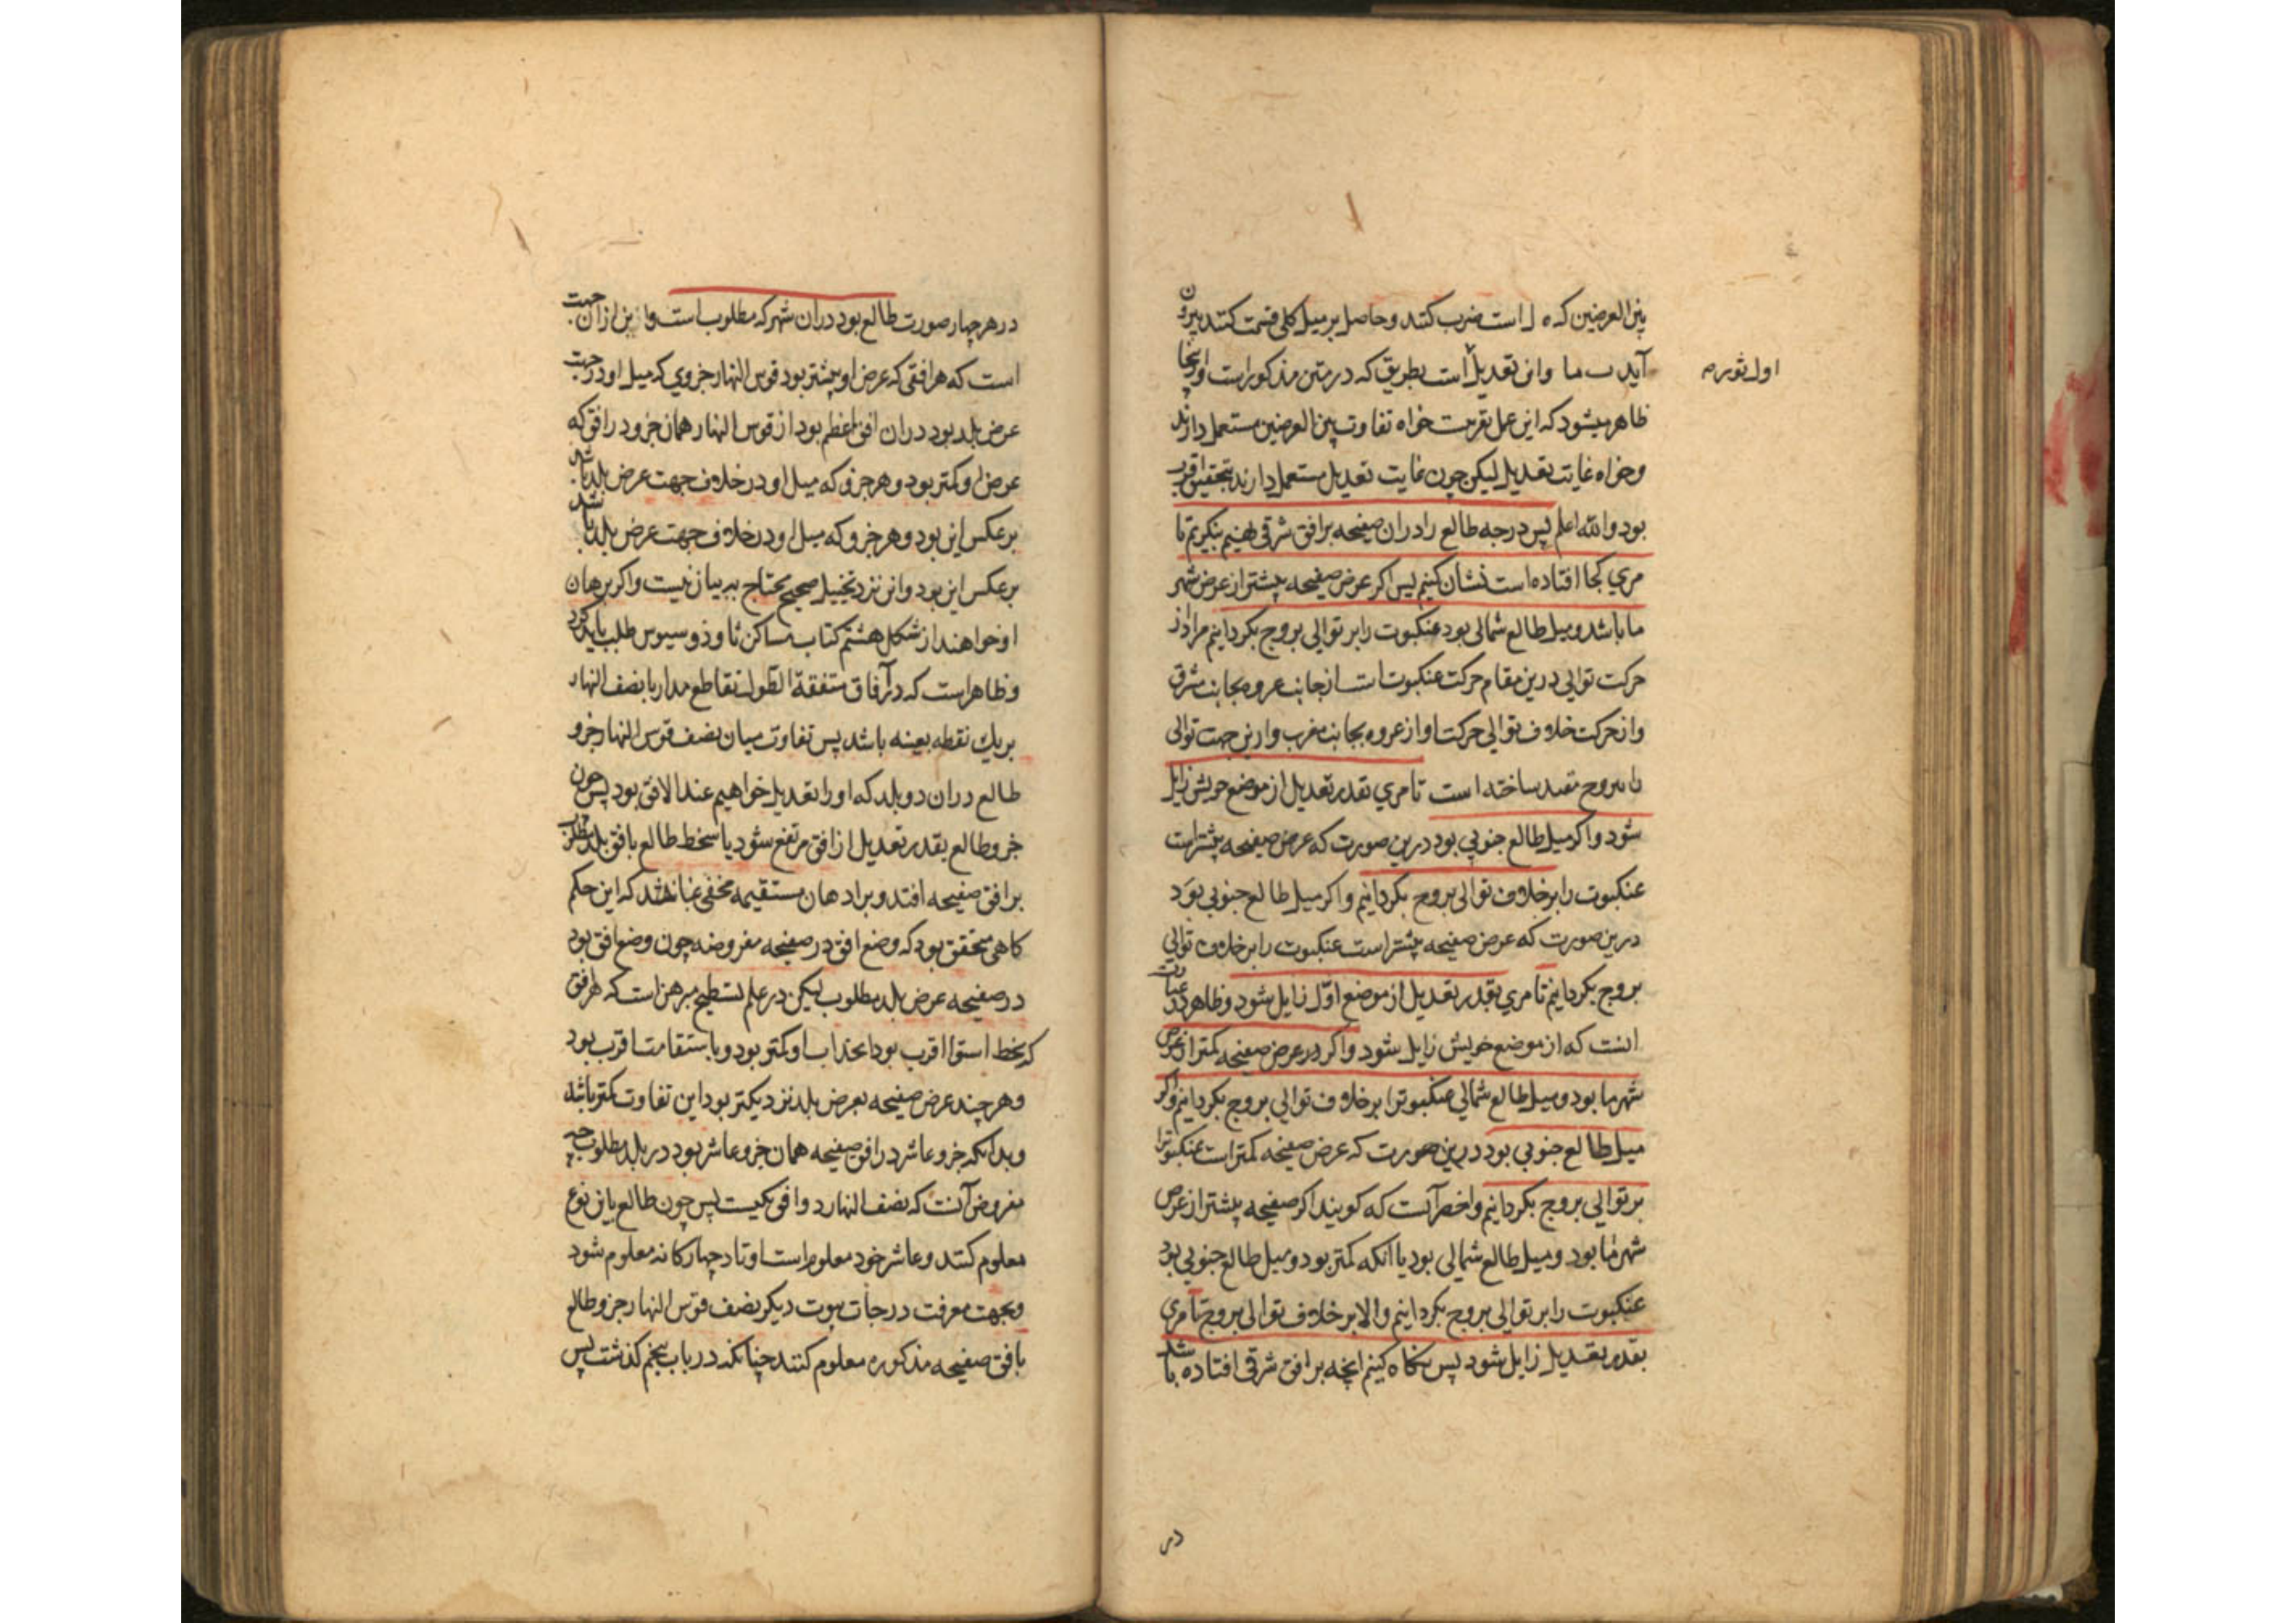 بین العرضین که ه ل است ضرب کنند و حاصل بر میل کلی قسمت کنند بیرون
آید ب ما و این تعدیل است بطریق که در متن مذکور است و اینجا
اول ثور م
ظاهر میشود که این عمل تقریبست خواه تفاوت بین العرضین مستعمل دارند
و خواه غایت تعدیل لیکن چون غایت تعدیل مستعمل دارند بتحقیق اقرب
بود والله اعلم پس درجه طالع را دران صفیحه برافق شرقی نهیم بنکریم تا
مری کجا افتاده است نشان کنیم پس اکر عرض صفیحه بیشتر از عرض شهر
ما باشد و میل طالع شمالی بود عنکبوت را بر توالی بروج بکردانیم مراد از
حرکت توالی درین مقام حرکت عنکبوت است از جانب عروه بجانب مشرق
و از حرکت خلاف توالی حرکت او از عروه بجانب مغرب و ازین جهت توالی
را ببروج مقید ساخته است تا مری بقدر تعدیل از موضع خویش زایل
شود و اکر میل طالع جنوبی بود درین صورت که عرض صفیحه بیشتر است
عنکبوت را بر خلاف توالی بروج بکردانیم و اکر میل طالع جنوبی بود
درین صورت که عرض صفیحه بیشتر است عنکبوت را بر خلاف توالی
بروج بکردانیم تا مری بقدر تعدیل از موضع اول زایل شود و ظاهر در عبارت
انست که از موضع خویش زایل شود و اکر در عرض صفیحه کمتر از عرض
شهر ما بود و میل طالع شمالی عنکبوترا بر خلاف توالی بروج بکردانیم و اکر
میل طالع جنوبی بود درین صورت که عرض صفیحه کمتر است عنکبوترا
بر توالی بروج بکردانیم و اخصر آنست که کویند اکر صفیحه بیشتر از عرض
شهر ما بود و میل طالع شمالی بود یا آنکه کمتر بود و میل طالع جنوبی بود
عنکبوت را بر توالی بروج بکردانیم و الا بر خلاف توالی بروج تا مری
بقدر تعدیل زایل شود پس نکاه کنیم انچه برافق شرقی افتاده باشد
در
در هر چهار صورت طالع بود دران شهر که مطلوب است و این ازان جهت
است که هر افقی که عرض او بیشتر بود قوس النهار جزوی که میل او در جهت
عرض بلد بود دران افق اعظم بود از قوس النهار همان جزو در افق که
عرض او کمتر بود و هر جزو که میل او در خلاف جهت عرض بلد باشد
بر عکس این بود و هر جزو که میل او در خلاف جهت عرض بلد باشد
بر عکس این بود و این نزد تخییل صحیح محتاج ببیان نیست و اکر برهان
او خواهند از شکل هشتم کتاب مساکن ثاوذوسیوس طلب باید کرد
و ظاهر است که در آفاق متفقة الطول تقاطع مدار با نصف النهار
بر یك نقطه بعینه باشد پس تفاوت میان نصف قوس النهار جزو
طالع دران دو بلد که او را تعدیل خواهیم عند الافق بود پس چون
جزو طالع بقدر تعدیل از افق مرتفع شود یا منحط طالع بافق بلد مطلوب
برافق صفیحه افتد و بر اذهان مستقیمه مخفی نماند که این حکم
کاهی متحقق بود که وضع افق در صفیحه مفروضه چون وضع افق بود
در صفیحه عرض بلد مطلوب لیکن در علم تسطیح مبرهن است که هر افق
که بخط استوا اقرب بود انجذاب او کمتر بود و باستقامت اقرب بود
و هر چند عرض صفیحه بعرض بلد نزدیکتر بود این تفاوت کمتر باشد
و بدانکه جزو عاشر در افق صفیحه همان جزو عاشر بود در بلد مطلوب چه
مفروض آنست که نصف النهار دو افق یکیست پس چون طالع باین نوع
معلوم کنند و عاشر خود معلوم است اوتاد چهارکانه معلوم شود
و بجهت معرفت درجات بیوت دیکر نصف قوس النهار جزو طالع
بافق صفیحه مذکوره معلوم کنند چنانکه در باب پنجم کذشت پس